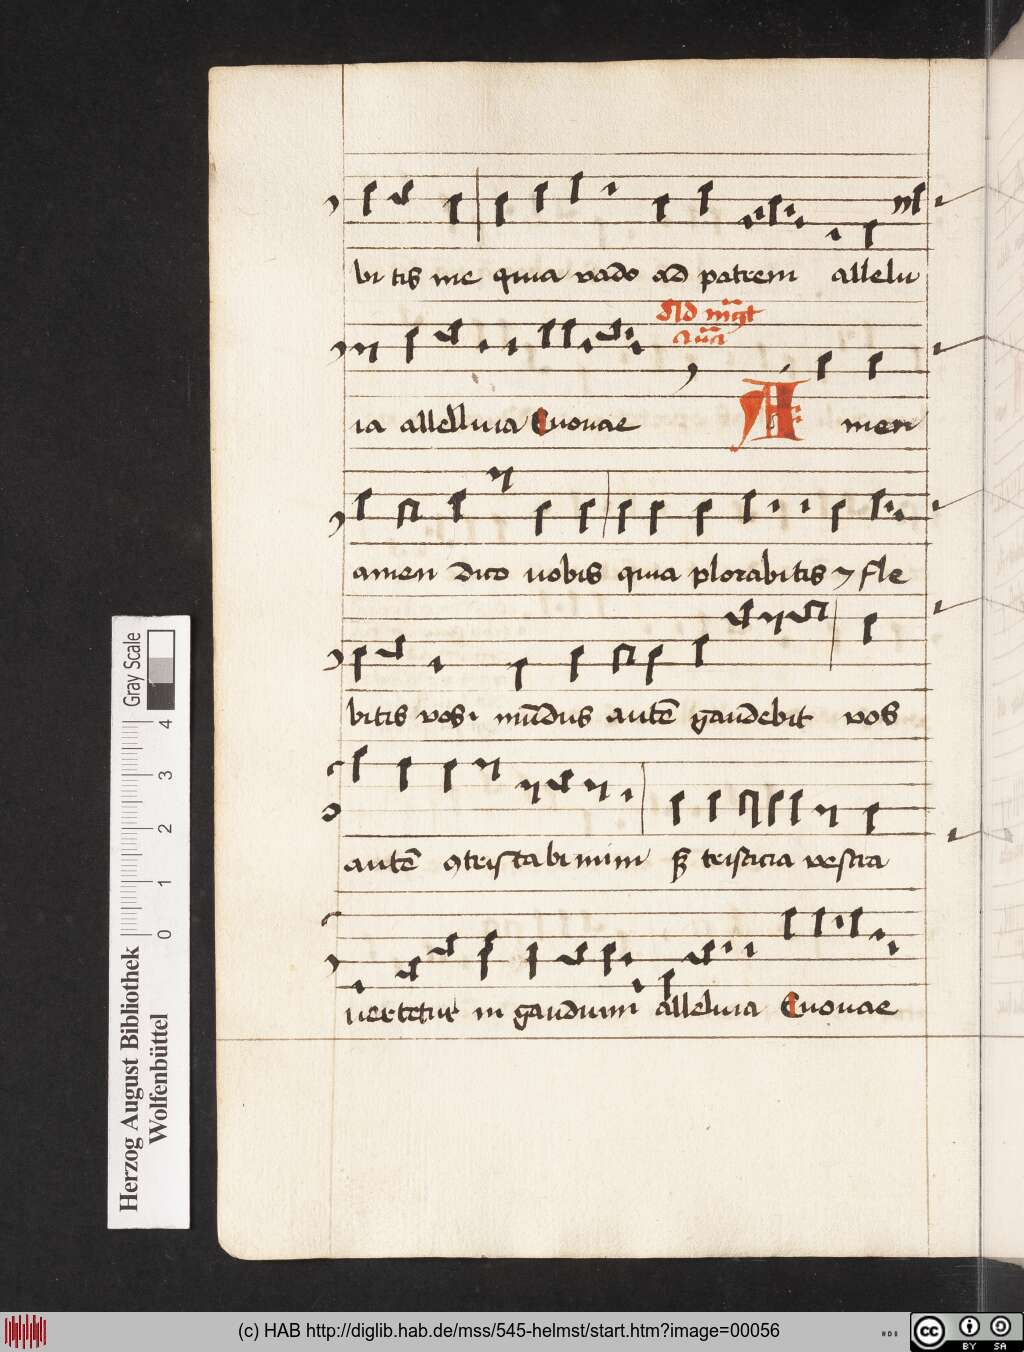 bi tis me quia vado ad patrem allelu
Ad mgt
aña
ia allelluia Euouae Amen
amen dico uobis quia plorabitis ⁊ fle
bitis vos mūdus autē gaudebit vos
autē ꝯtristabimini sꝫ tristicia vestra
uertetur in gaudium alleluia Euouae
Gray Scale
0 1 2 3 4
Herzog August Bibliothek
Wolfenbüttel
(c) HAB http://diglib.hab.de/mss/545-helmst/start.htm?image=00056
cc BY SA